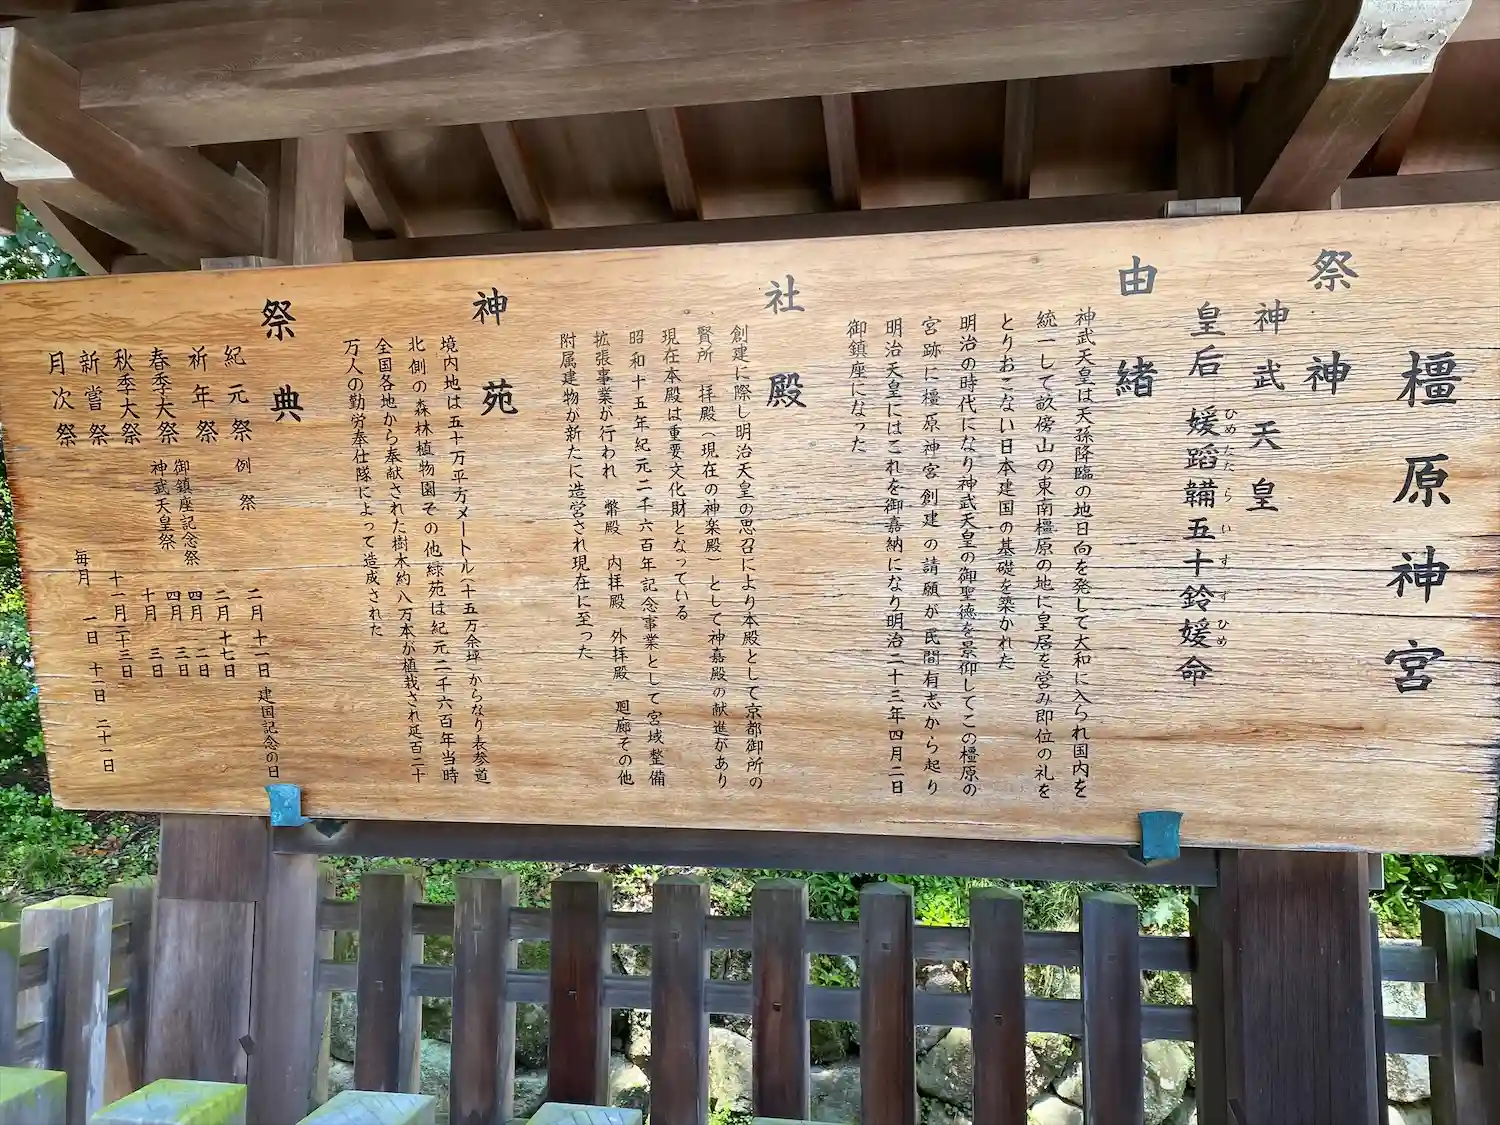 橿原神宮
祭神
神武天皇
皇后 媛蹈韛五十鈴媛命
ひめたたらいすずひめ
由緒
神武天皇は天孫降臨の地日向を発して大和に入られ国内を
統一して畝傍山の東南橿原の地に皇居を営み即位の礼を
とりおこない日本建国の基礎を築かれた
明治の時代になり神武天皇の御聖徳を景仰してこの橿原の
宮跡に橿原神宮創建の請願が民間有志から起り
明治天皇にはこれを御嘉納になり明治二十三年四月二日
御鎮座になった
社殿
創建に際し明治天皇の思召により本殿として京都御所の
賢所 拝殿(現在の神楽殿 として神嘉殿の献進があり
現在本殿は重要文化財となっている
昭和十五年紀元二千六百年記念事業として宮域整備
拡張事業が行われ 幣殿 内拝殿 外拝殿 廻廊その他
附属建物が新たに造営され現在に至った
神苑
境内地は五十万平方メートル(十五万余坪 からなり表参道
北側の森林植物園その他緑苑は紀元二千六百年当時
全国各地から奉献された樹木約八万本が植栽され延百二十
万人の勤労奉仕隊によって造成された
祭典
紀元祭 例祭 二月十一日 建国記念の日
祈年祭 二月十七日
春季大祭 御鎮座記念祭 四月二日
神武天皇祭 四月三日
秋季大祭 十月三日
新嘗祭 十一月二十三日
月次祭 毎月 一日 十一日 二十一日